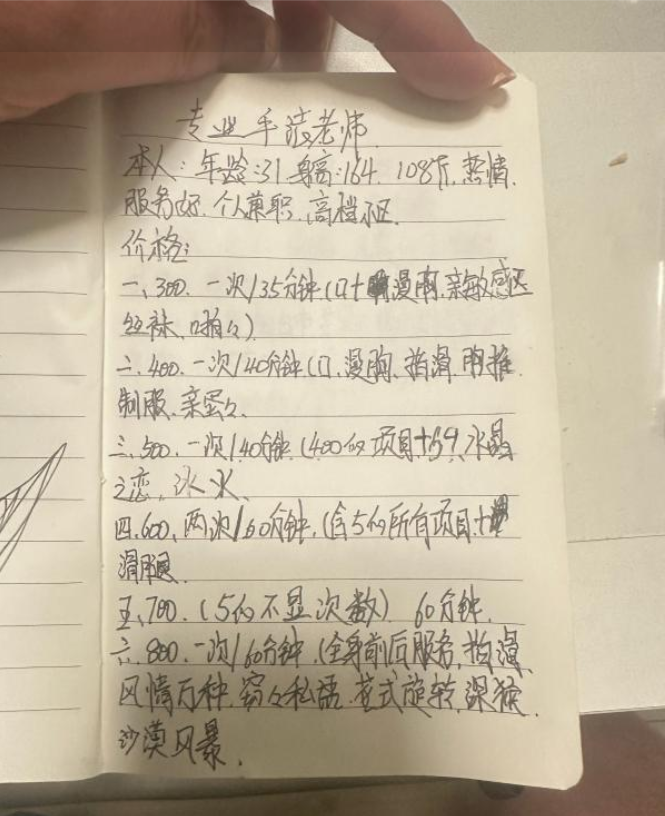 专业手法老师
本人:年龄:31.身高:164. 108斤,热情.
服务好.个人兼职、高档小区.
价格:
一、300.一次/35分钟(口+漫胸.亲敏感区
丝袜、啪々)
二、400.一次/40分钟(口、漫胸、指滑.胸推.
制服、亲蛋々、
三、500、一次/40分钟(400的项目+69、水晶
之恋、冰火、
四.600、两次/60分钟.(含5的所有项目+
滑腿.
五、700.(5的不显次数) 60分钟.
六、800.一次/60分钟.(全身前后服务、指滑、
风情万种.窃々私语.花式旋转.深猴.
沙漠风暴.